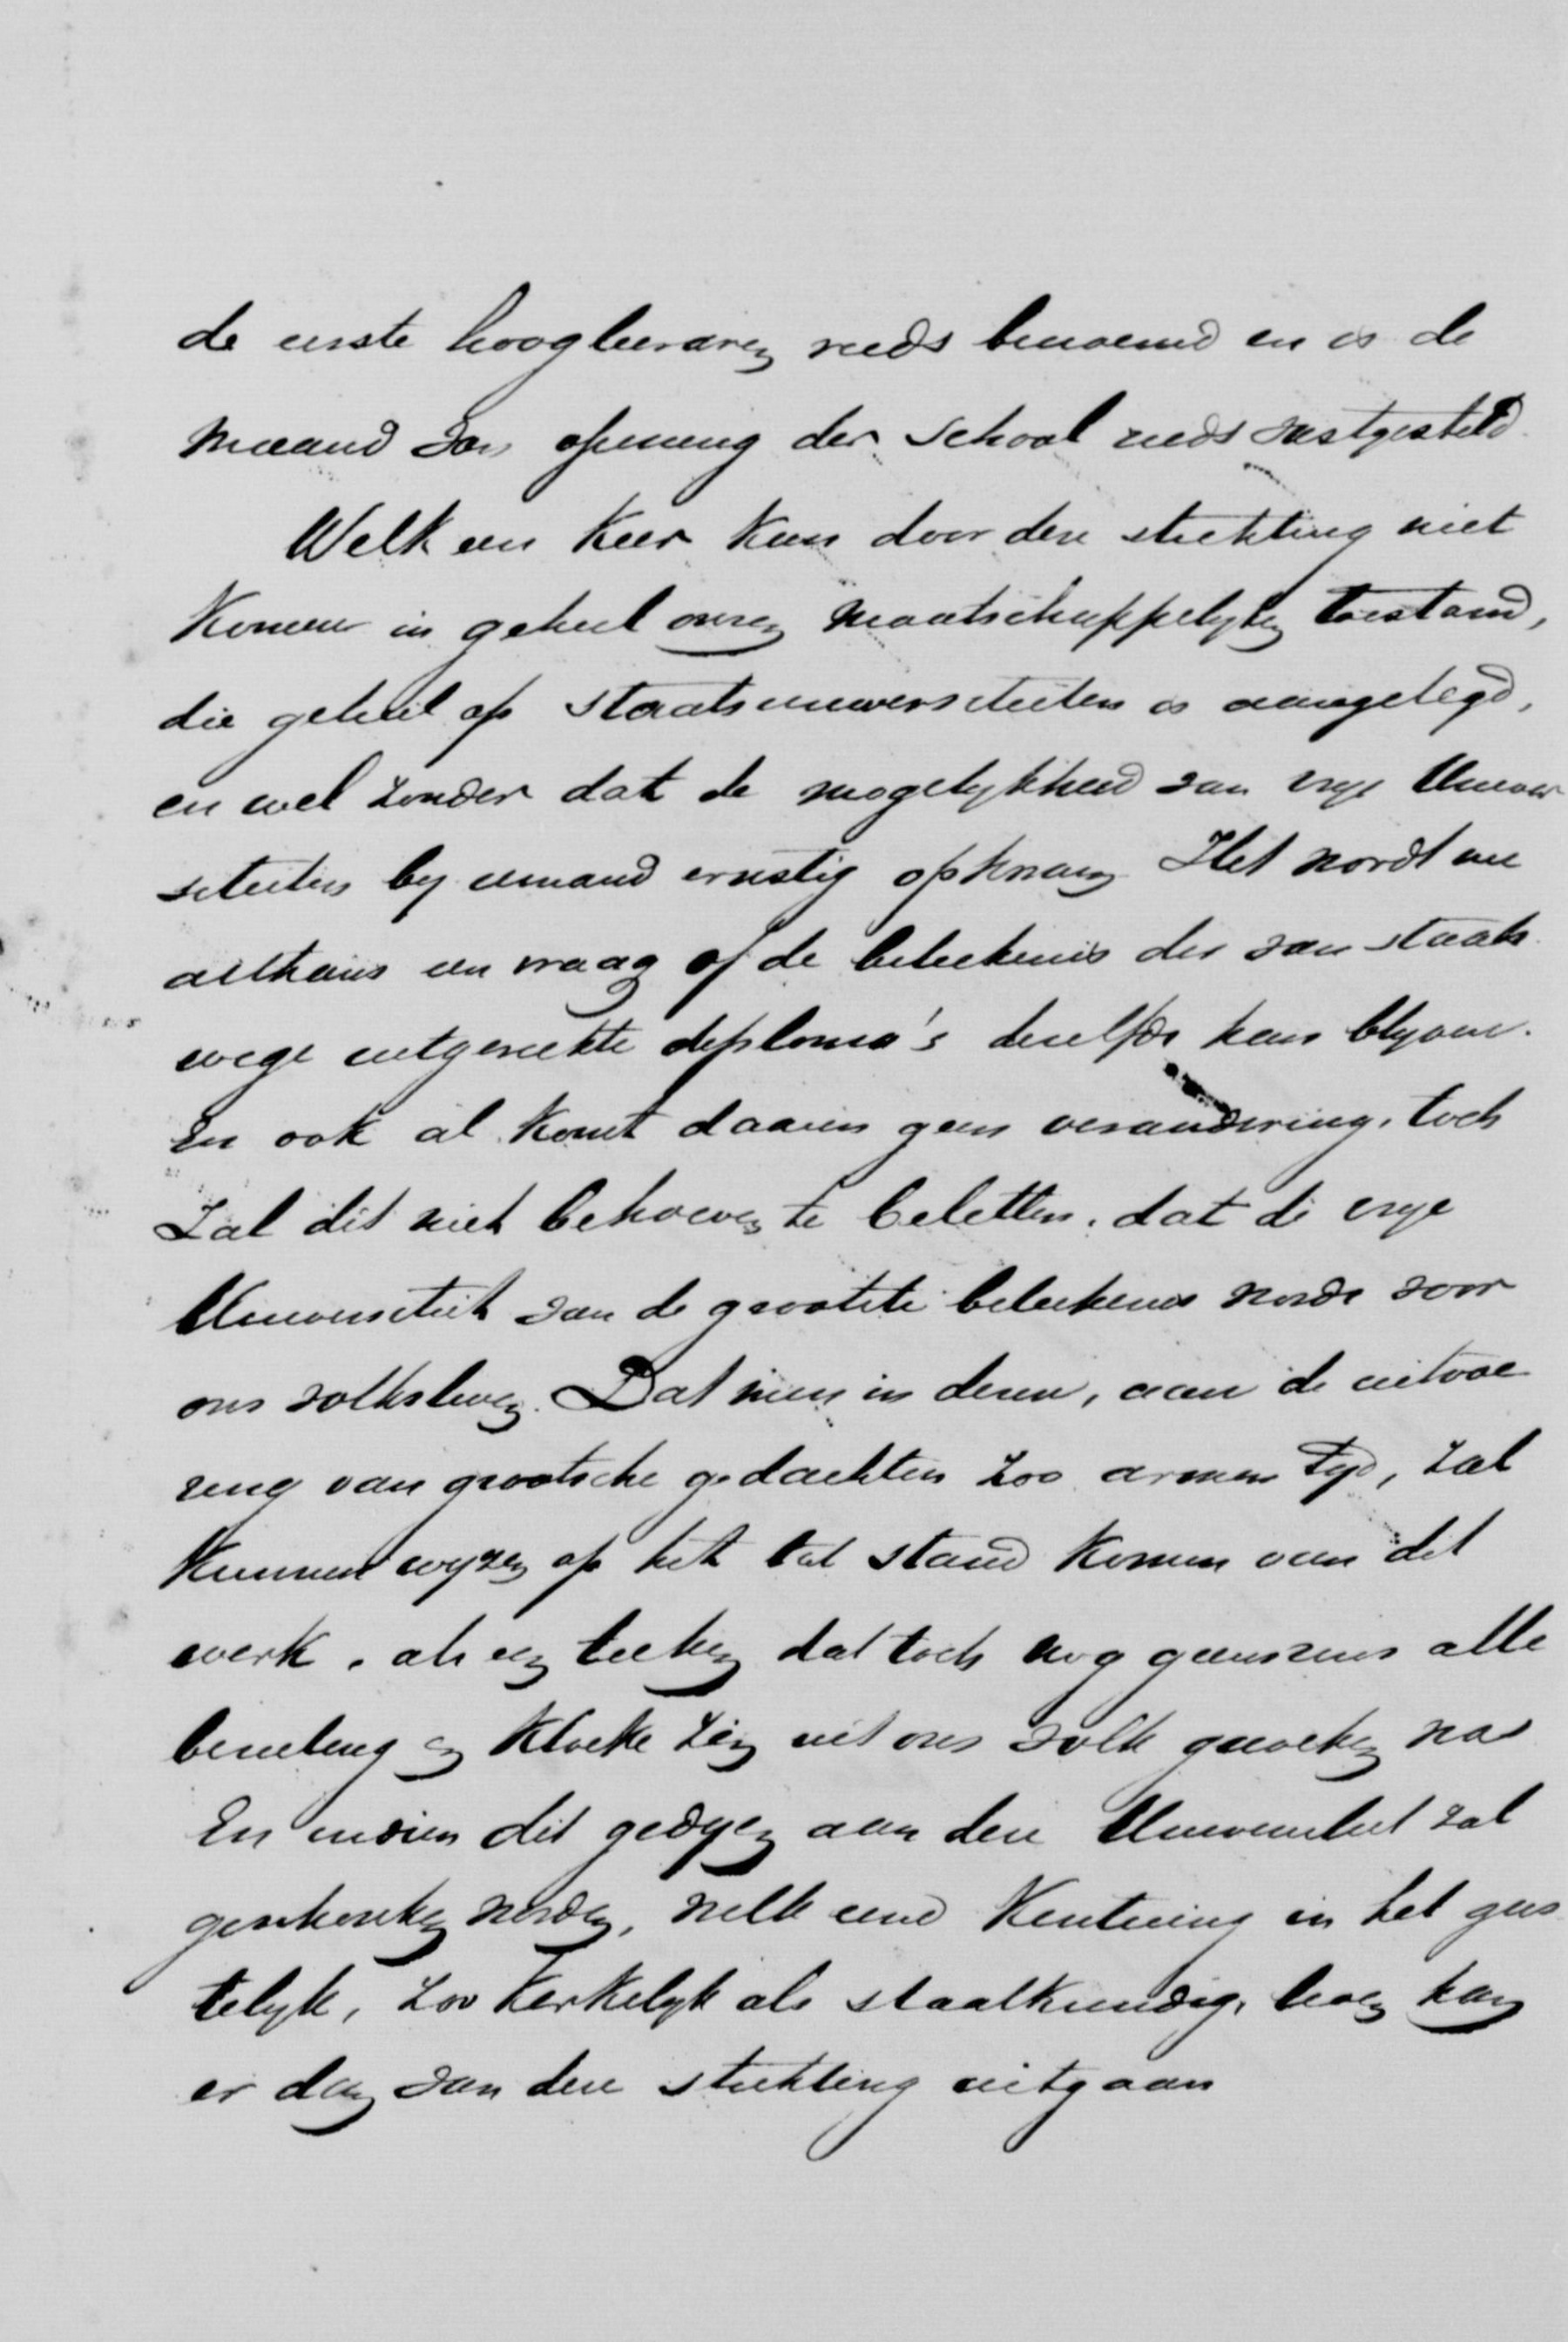 de eerste hoogleeraren reeds benoemd en is de
maand van opening der School reeds vastgesteld.
Welk een keer kan door deze stichting niet
komen in geheel onzen maatschappelyken toestand,
die geheel op Staatsuniversiteiten is aangelegd,
en wel zonder dat de mogelykheid van vrye Univer
siteiten by iemand ernstig opkwam. Het wordt nu
althans een vraag of de beteekenis der van staats
wege uitgereikte diploma's dezelfde kan blyven.
En ook al komt daarin geen verandering, toch
zal dit niet behoeven te beletten, dat de vrye
Universiteit van de grootste beteekenis worde voor
ons volksleven. Dat men in dezen, aan de uitvoe
ring van grootsche gedachten zoo armen tyd, zal
kunnen wyzen op het tot stand komen van dit
werk, als een teeken dat toch nog geenszins alle
bezieling en kloeke zin uit ons volk geweken was
En indien dit gedyen aan deze Universiteit zal
geschonken worden, welk eene Kentering in het gees
telyk, zoo kerkelyk als staatkundig, leven kan
er dan van deze stichting uitgaan